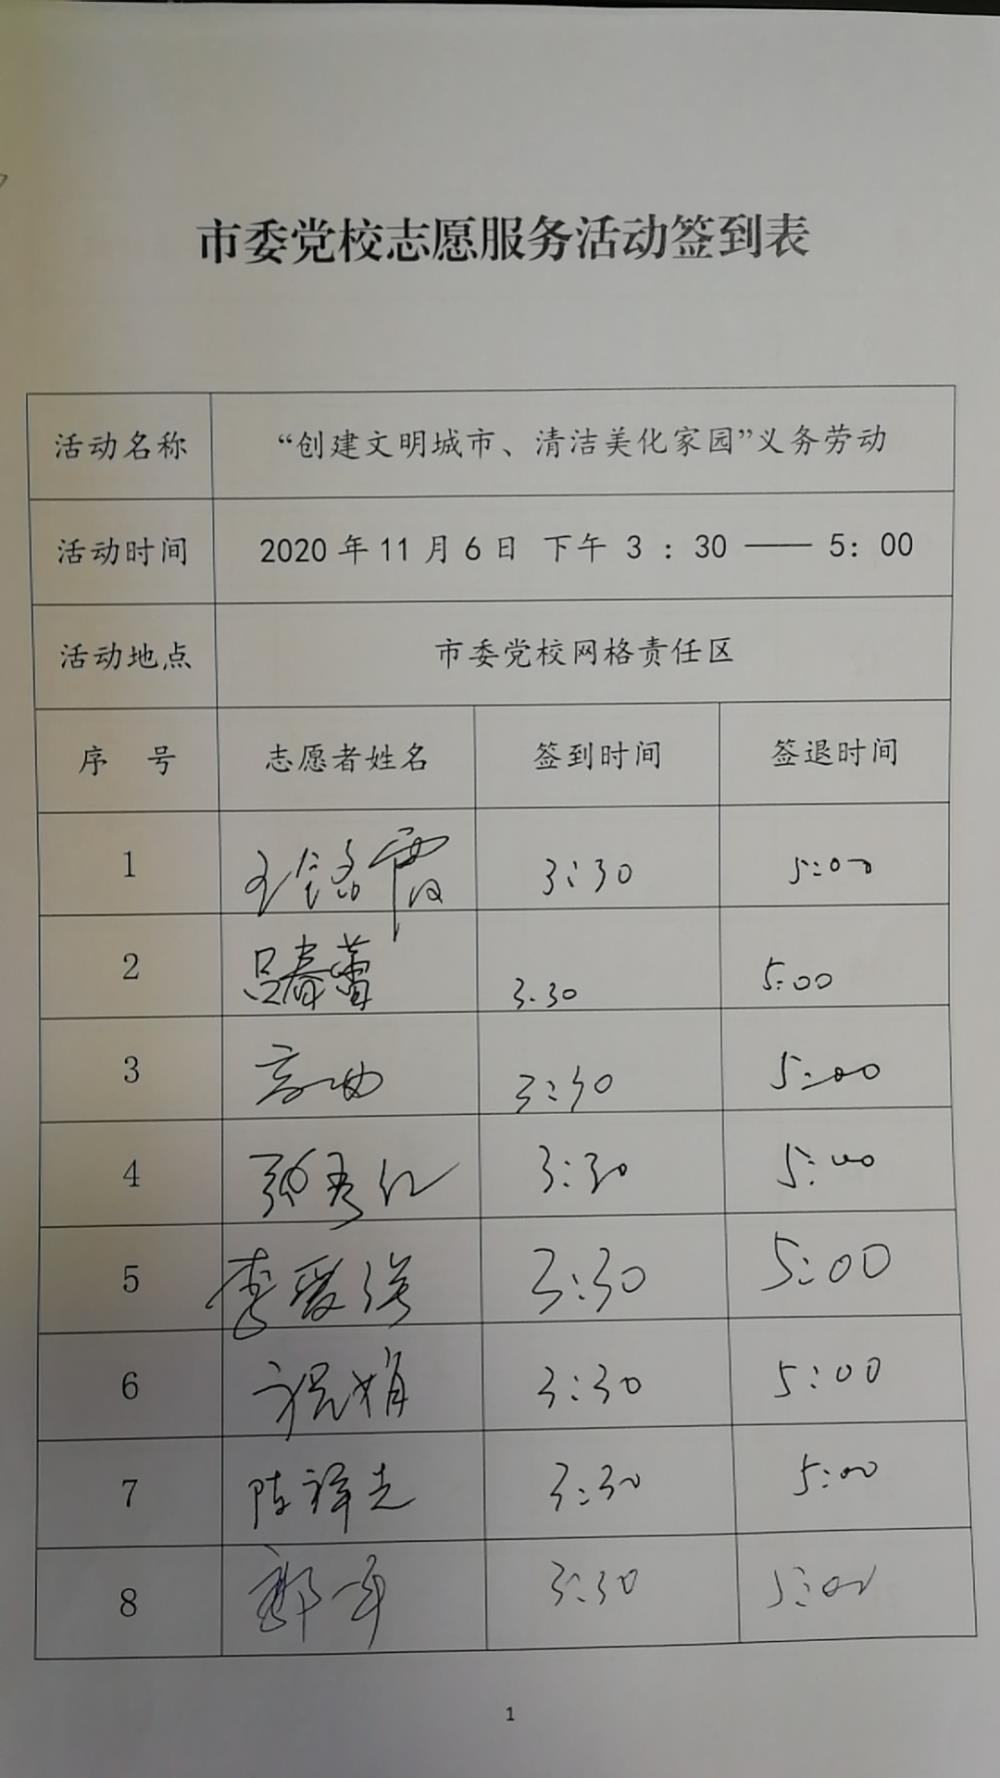 市委党校志愿服务活动签到表
活动名称 “创建文明城市、清洁美化家园”义务劳动
活动时间 2020 年 11 月 6 日 下午 3 : 30 —— 5: 00
活动地点 市委党校网格责任区
序 号 志愿者姓名 签到时间 签退时间
1 王铭霞 3:30 5:00
2 吕春蕾 3.30 5:00
3 3:30 5:00
4 3:30 5:00
5 李爱强 3:30 5:00
6 祝娟 3:30 5:00
7 陈祥志 3:30 5:00
8 3:30 5:00
1